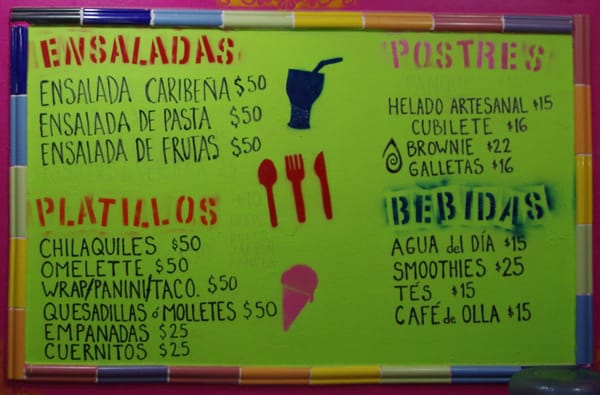 ENSALADAS
ENSALADA CARIBEÑA $50
ENSALADA DE PASTA $50
ENSALADA DE FRUTAS $50
PLATILLOS
CHILAQUILES $50
OMELETTE $50
WRAP/PANINI/TACO. $50
QUESADILLAS ó MOLLETES $50
EMPANADAS $25
CUERNITOS $25
POSTRES
HELADO ARTESANAL $15
CUBILETE $16
BROWNIE $22
GALLETAS $16
BEBIDAS
AGUA del DÍA $15
SMOOTHIES $25
TÉS $15
CAFÉ de OLLA $15